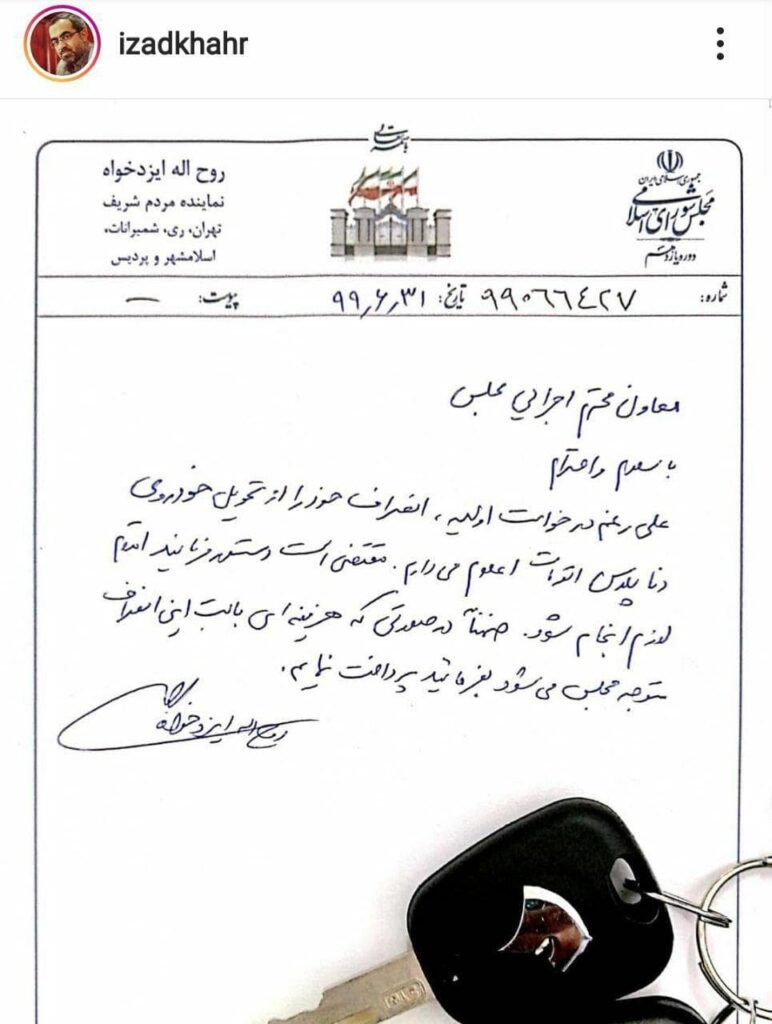 izadkhahr
باسمه تعالی
جمهوری اسلامی ایران
مجلس شورای اسلامی
دوره یازدهم
روح اله ایزدخواه
نماینده مردم شریف
تهران، ری، شمیرانات،
اسلامشهر و پردیس
شماره: ۹۹۰۶۶۴۲۷ تاریخ: ۹۹٫۶٫۳۱ پیوست: —
معاون محترم اجرایی مجلس
با سلام و احترام
علی رغم درخواست اولیه، انصراف خود را از تحویل خودروی
دنا پلاس اتومات اعلام می دارم. مقتضی است دستور فرمائید اقدام
لازم انجام شود. ضمناً در صورتی که هزینه ای بابت این انصراف
متوجه مجلس می شود بفرمائید پرداخت نمایم.
روح اله ایزدخواه